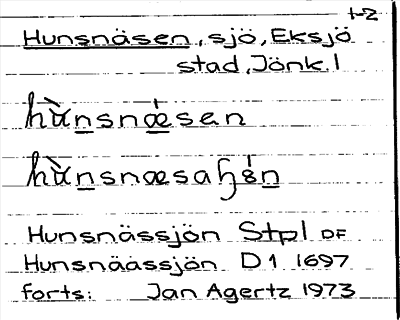 1-2
Hunsnäsen, sjö, Eksjö
stad, Jönk. l
hùnsnǽsen
hùnsnæsaɧǿn
Hunsnässjön Stpl DF
Hunsnäässjön D1 1697
forts: Jan Agertz 1973